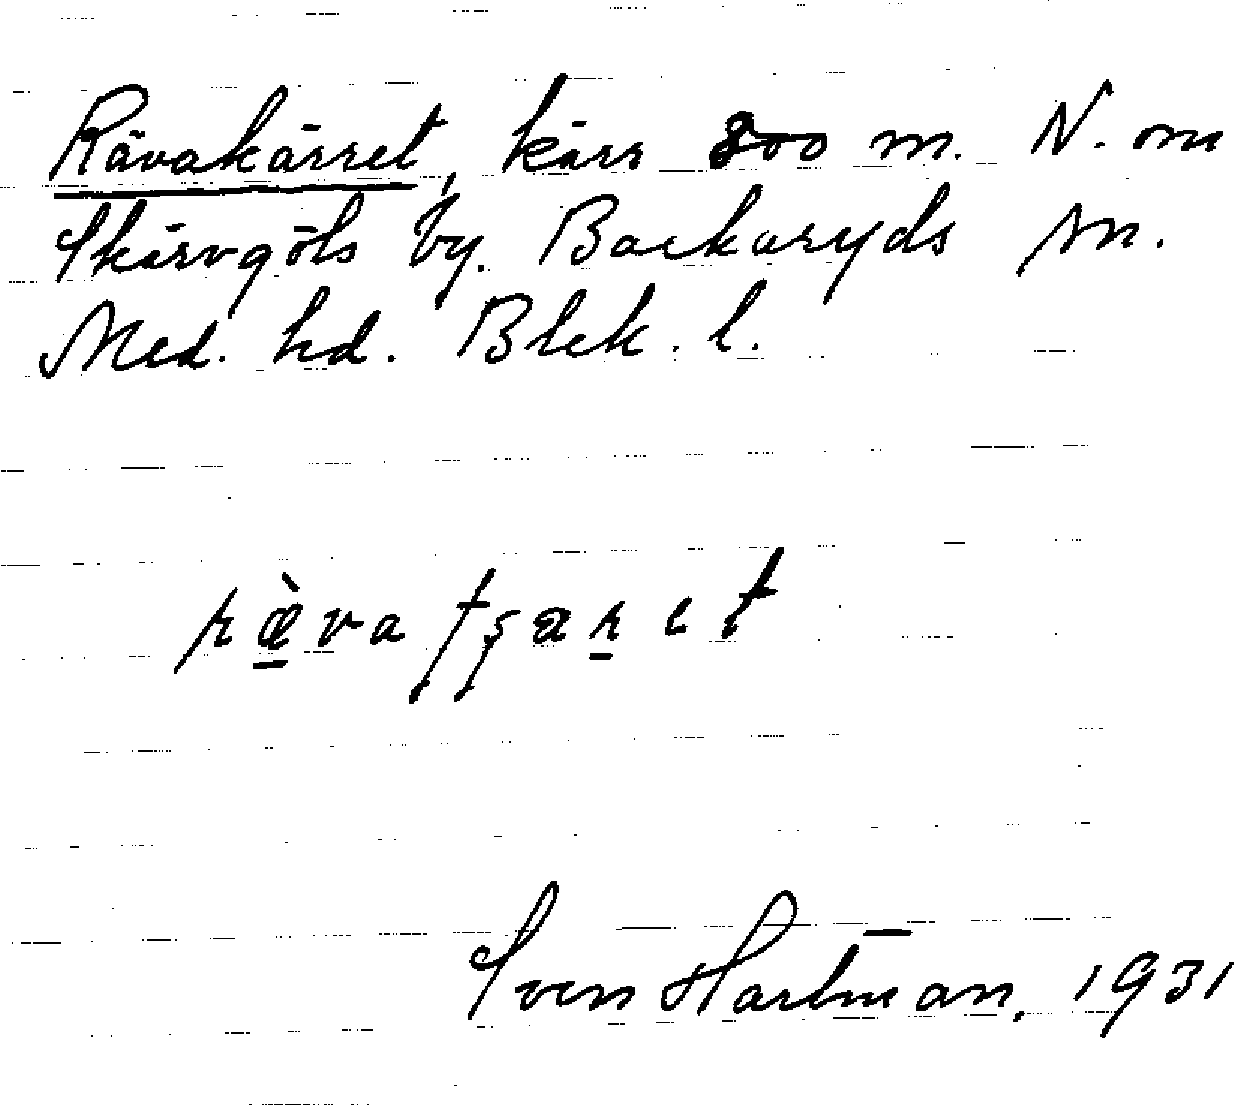 Rävakärret, kärr 800 m. N. om
Skärvgöls by. Backaryds sn.
Med. hd. Blek. l.
ræ̀va tʂæret
Sven Hartman, 1931